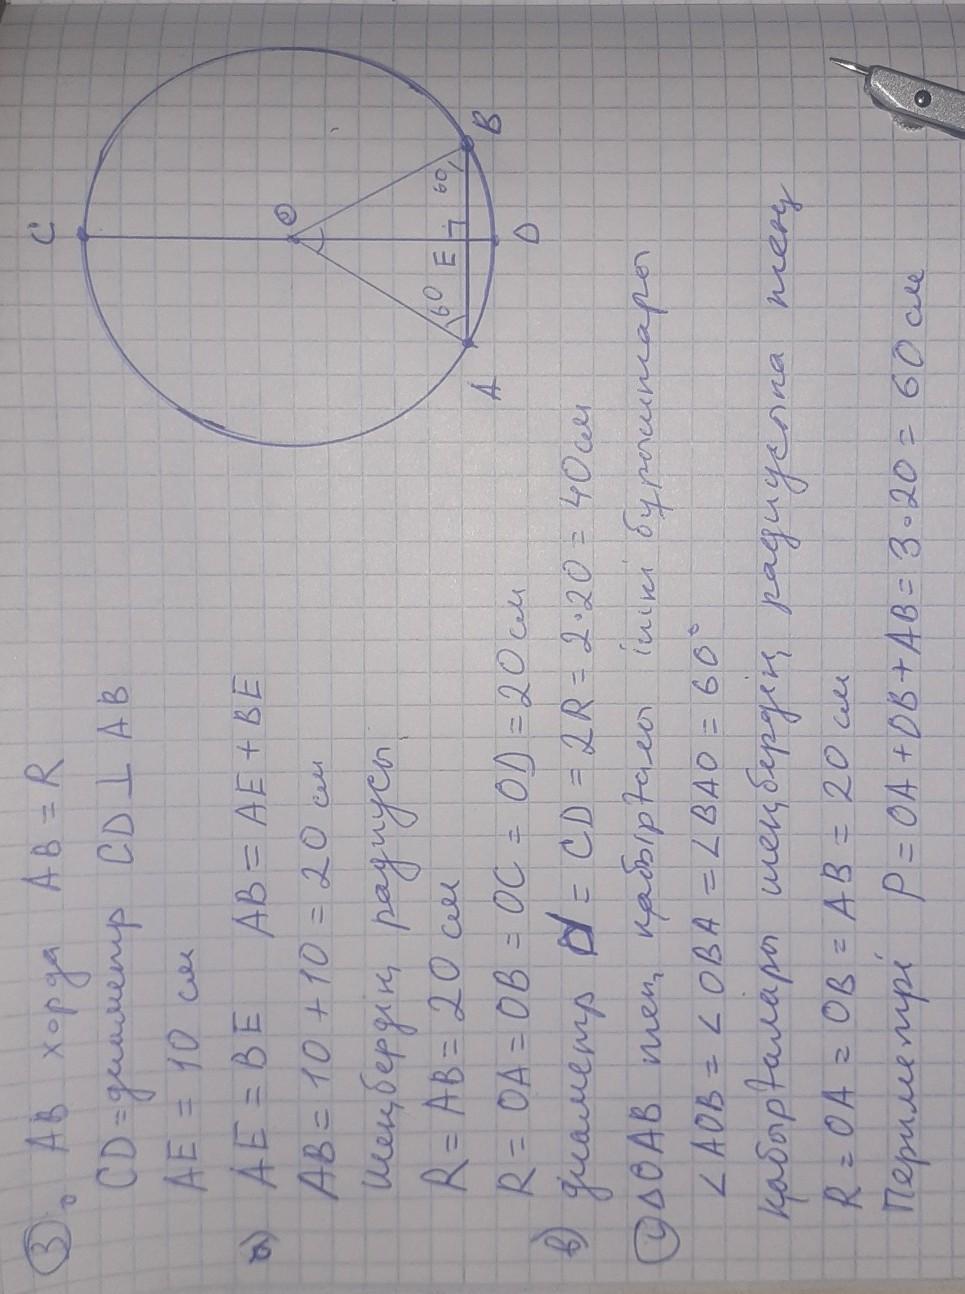 3. AB хорда AB = R
CD = диаметр CD ⊥ AB
AE = 10 см
а) AE = BE AB = AE + BE
AB = 10 + 10 = 20 см
Шеңбердің радиусы
R = AB = 20 см
R = OA = OB = OC = OD = 20 см
в) диаметр d = CD = 2R = 2·20 = 40 см
△OAB тең қабырғалы ішкі бұрыштары
∠AOB = ∠OBA = ∠BAO = 60°
қабырғалары шеңбердің радиусына тең
R = OA = OB = AB = 20 см
Периметрі P = OA + OB + AB = 3·20 = 60 см
C
O
60
E
60
A
B
D